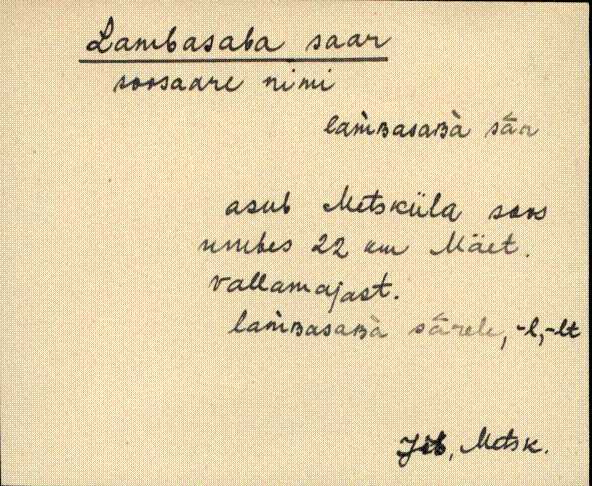 Lambasaba saar
soosaare nimi
lam̀ʙasaʙà sār
asub Metsküla soos
umbes 22 km Mäet.
vallamajast.
lam̀ʙasaʙà sārele, -l, -lt
Jõe, Metsk.